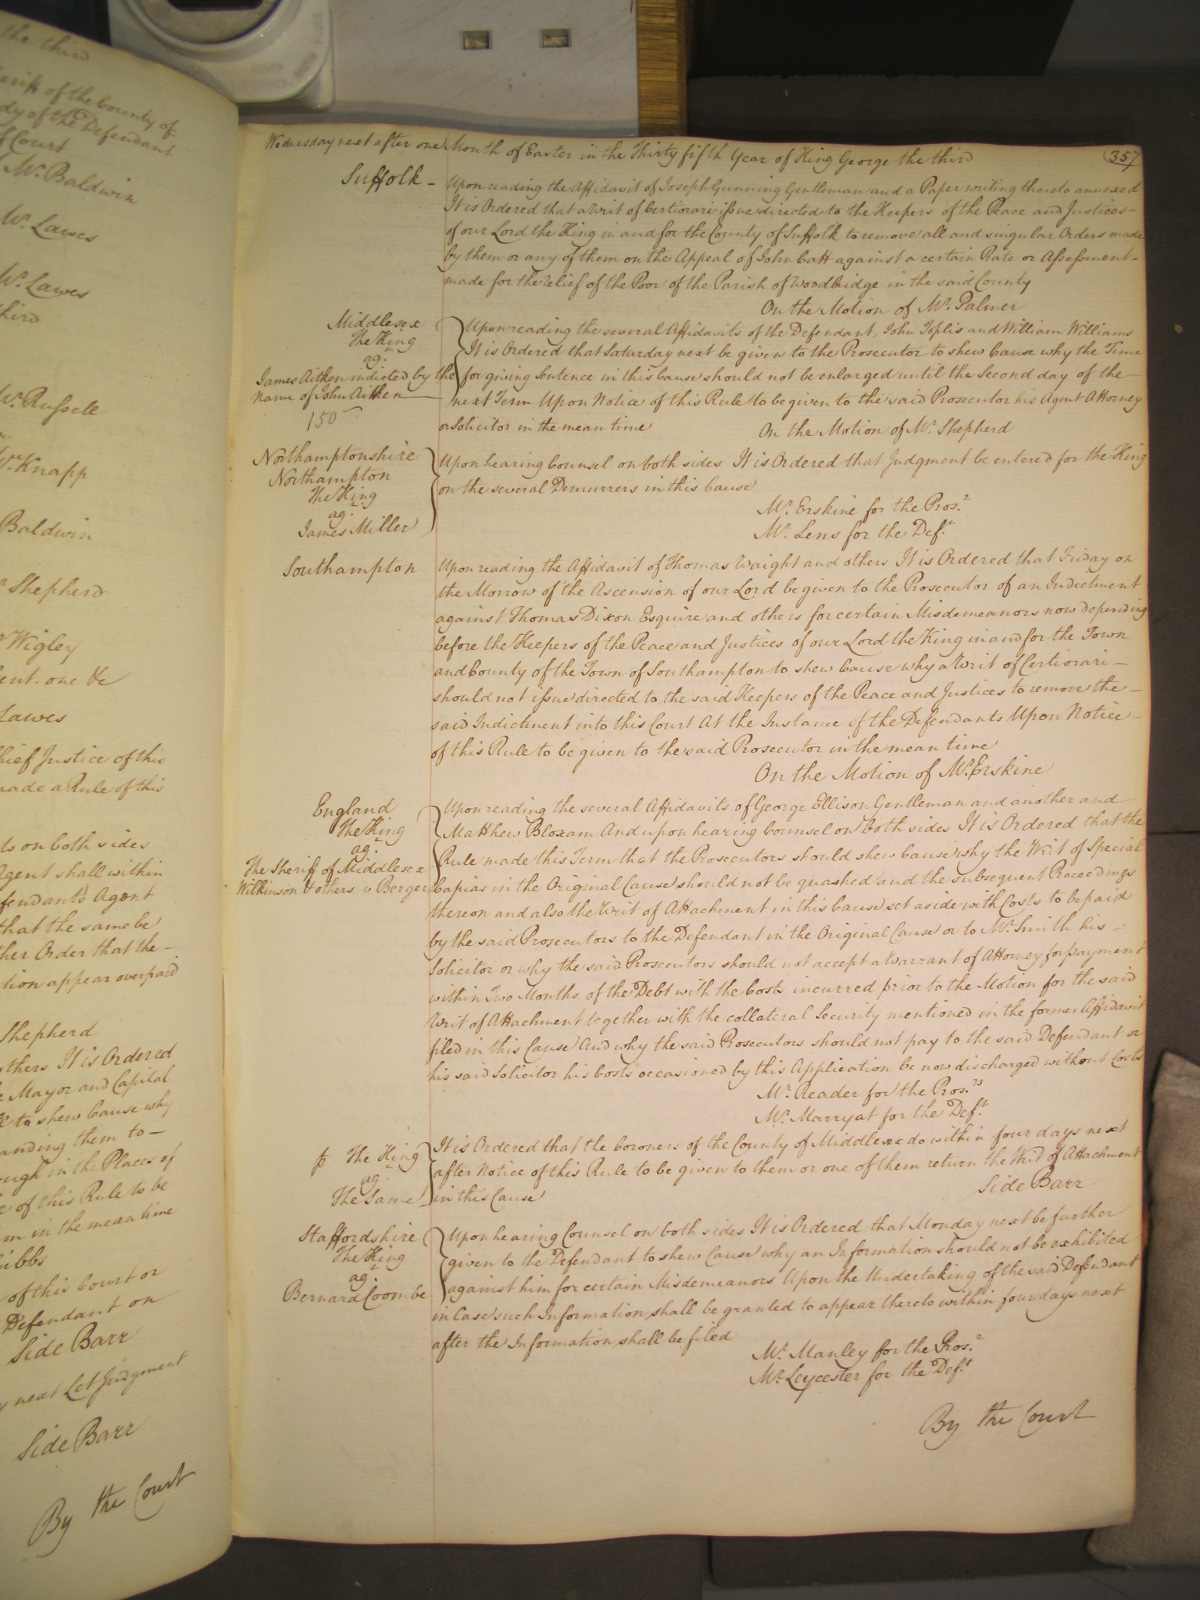 the third
of the County of
dy of the Defendant
f Court
Mr. Baldwin
Mr. Lawes
Mr. Lawes
hird
Mr. Russell
Mr. Knapp
Baldwin
Shepherd
Wigley
ent. one &c
Lawes
hief Justice of this
made a Rule of this
ts on both sides
Agent shall within
fendants Agent
that the same be
ther Order that the –
tion appear overpaid
Shepherd
others It is Ordered
e Mayor and Capital
to shew Cause why
anding them to –
ough in the Places of
e of this Rule to be
m in the mean time
ibbs
of this Court or
Defendant on
Side Barr
y next Let Judgment
Side Barr
By the Court
Wednesday next after one Month of Easter in the Thirty fifth Year of King George the third
357
Suffolk –
Upon reading the Affidavit of Joseph Gunning Gentleman and a Paper writing thereto annexed
It is Ordered that a Writ of Certiorari issue directed to the Keepers of the Peace and Justices –
of our Lord the King in and for the County of Suffolk to remove all and singular Orders made
by them or any of them on the Appeal of John Catt against a certain Rate or Assessment –
made for the relief of the Poor of the Parish of Woodbridge in the said County
On the Motion of Mr. Palmer
Middlesex
The King
ag.
James Aitken indicted by the
name of John Aitken
150
Upon reading the several Affidavits of the Defendant, John Toplis and William Williams
It is Ordered that Saturday next be given to the Prosecutor to shew Cause why the Time
for giving Sentence in this Cause should not be enlarged until the Second day of the –
next Term Upon Notice of this Rule to be given to the said Prosecutor his Agent Attorney
or Solicitor in the mean time
On the Motion of Mr. Shepherd
Northamptonshire
Northampton
The King
ag.
James Miller
Upon hearing Counsel on both sides It is Ordered that Judgment be entered for the King
on the several Demurrers in this Cause
Mr. Erskine for the Pros.r
Mr. Lens for the Def.t
Southampton
Upon reading the Affidavit of Thomas Waight and others It is Ordered that Friday on
the Morrow of the Ascension of our Lord be given to the Prosecutor of an Indictment
against Thomas Dixon Esquire and others for certain Misdemeanors now depending
before the Keepers of the Peace and Justices of our Lord the King in and for the Town
and County of the Town of Southampton to shew Cause why a Writ of Certiorari –
should not issue directed to the said Keepers of the Peace and Justices to remove the –
said Indictment into this Court At the Instance of the Defendants Upon Notice –
of this Rule to be given to the said Prosecutor in the mean time
On the Motion of Mr. Erskine
England
The King
ag.
The Sheriff of Middlesex
Wilkinson & others v Berger
Upon reading the several Affidavits of George Ellison Gentleman and another and
Matthew Bloxam And upon hearing Counsel on both sides It is Ordered that the
Rule made this Term that the Prosecutors should shew Cause why the Writ of Special
Capias in the Original Cause should not be quashed and the subsequent Proceedings
thereon and also the Writ of Attachment in this Cause set aside with Costs to be paid
by the said Prosecutors to the Defendant in the Original Cause or to Mr. Smith his –
Solicitor or why the said Prosecutors should not accept a Warrant of Attorney for payment
within Two Months of the Debt with the Costs incurred prior to the Motion for the said
Writ of Attachment together with the collateral Security mentioned in the former Affidavit
filed in this Cause And why the said Prosecutors should not pay to the said Defendant or
his said Solicitor his Costs occasioned by this Application be now discharged without Costs
Mr. Reader for the Pros.rs
Mr. Marryat for the Def.t
The King
ag.
The Same
It is Ordered that the Coroners of the County of Middlesex do within four days next
after Notice of this Rule to be given to them or one of them return the Writ of Attachment
in this Cause
Side Barr
Staffordshire
The King
ag.
Bernard Coombe
Upon hearing Counsel on both sides It is Ordered that Monday next be further
given to the Defendant to shew Cause why an Information should not be exhibited
against him for certain Misdemeanors Upon the Undertaking of the said Defendant
in Case such Information shall be granted to appear thereto within four days next
after the Information shall be filed
Mr. Manley for the Pros.r
Mr. Leycester for the Def.t
By the Court